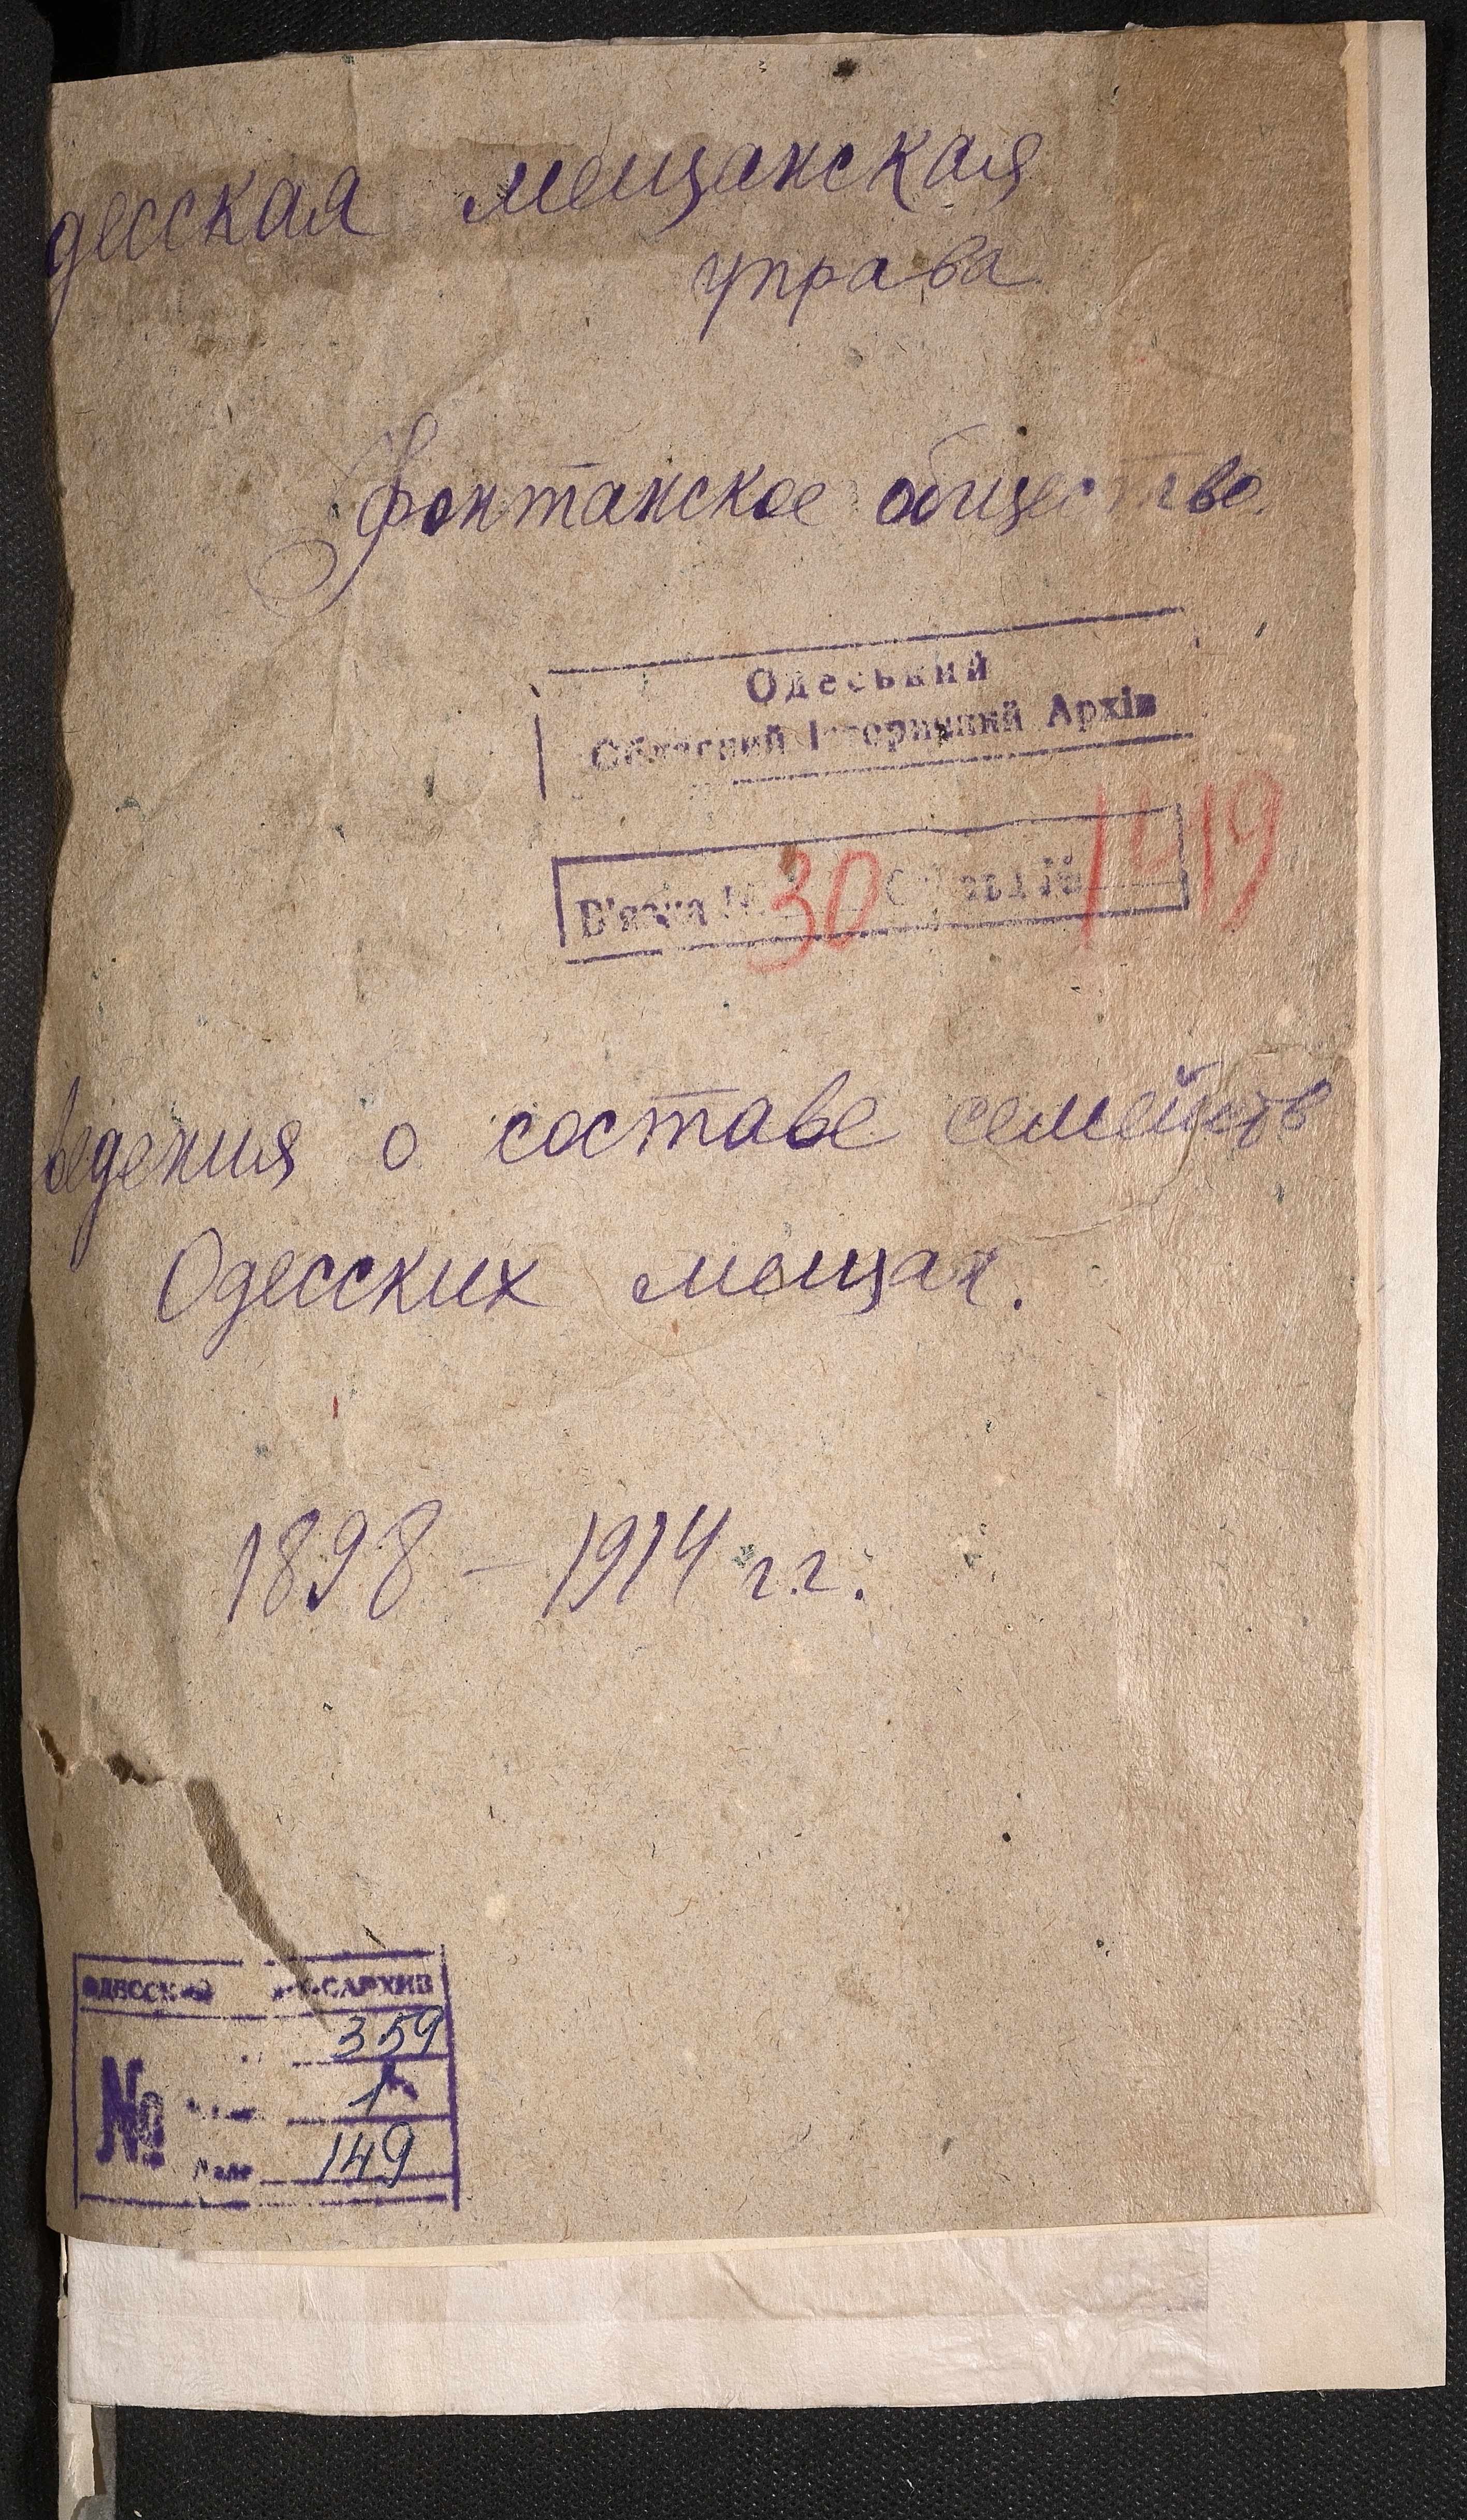 десская мещанская
управа
Фонтанское общество.
Одеський
Обласний Історичний Архів
В'язка № 30 1419
ведения о составе семейств
Одесских мещан.
1898 – 1914 г.г.
ОДЕССКИЙ ОБЛГОСАРХИВ
359
№ 1
149